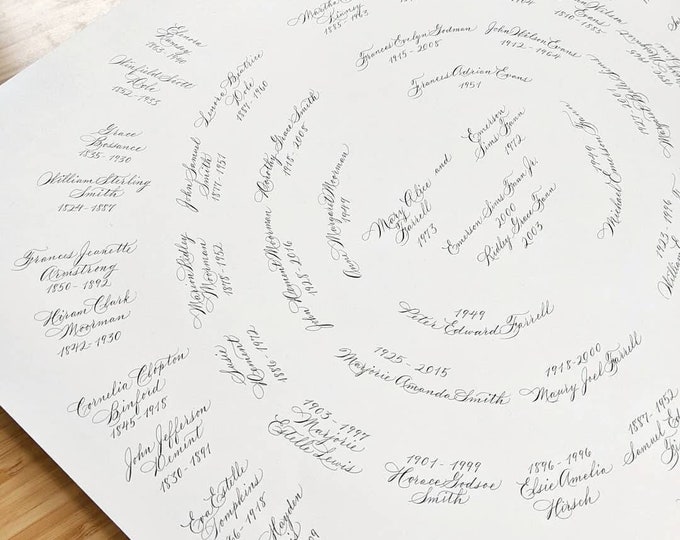 Martha
Kinney
1885-1963
Frances Evelyn Godman
1915-2008
John Wilson Evans
1912-1964
Frances Adrian Evans
1951
1965-1940
Winfield Scott
Dole
1862-1933
Lenora Beatrice
Dole
1889-1960
Grace
Bossance
1835-1930
William Sterling
Smith
1824-1887
John Samuel
Smith
1877-1951
Dorothy Grace Smith
1918-2008
Anne Margaret Moorman
1949
Emerson
Sims Fann
1972
Mary Alice and
Farrell
1973
Emerson Sims Fann Jr.
2000
Ridley Grace Fann
2003
Michael Emerson Fann
1949
Frances Jeanette
Armstrong
1850-1892
Hiram Clark
Moorman
1842-1930
Marion Ridley
Moorman
1878-1952
John Rement Moorman
1928-2016
Susie
Rement
1886-1972
Cornelia Clopton
Binford
1845-1918
John Jefferson
Rement
1830-1891
Eva Estelle
Tompkins
Hayden
1949
Peter Edward Farrell
1925-2015
Marjorie Amanda Smith
1918-2000
Maury Joel Farrell
1903-1997
Marjorie
Estelle Lewis
1901-1999
Horace Godsoe
Smith
1896-1996
Elsie Amelia
Hirsch
1887-1952
Samuel Ed
1923-1996
William E